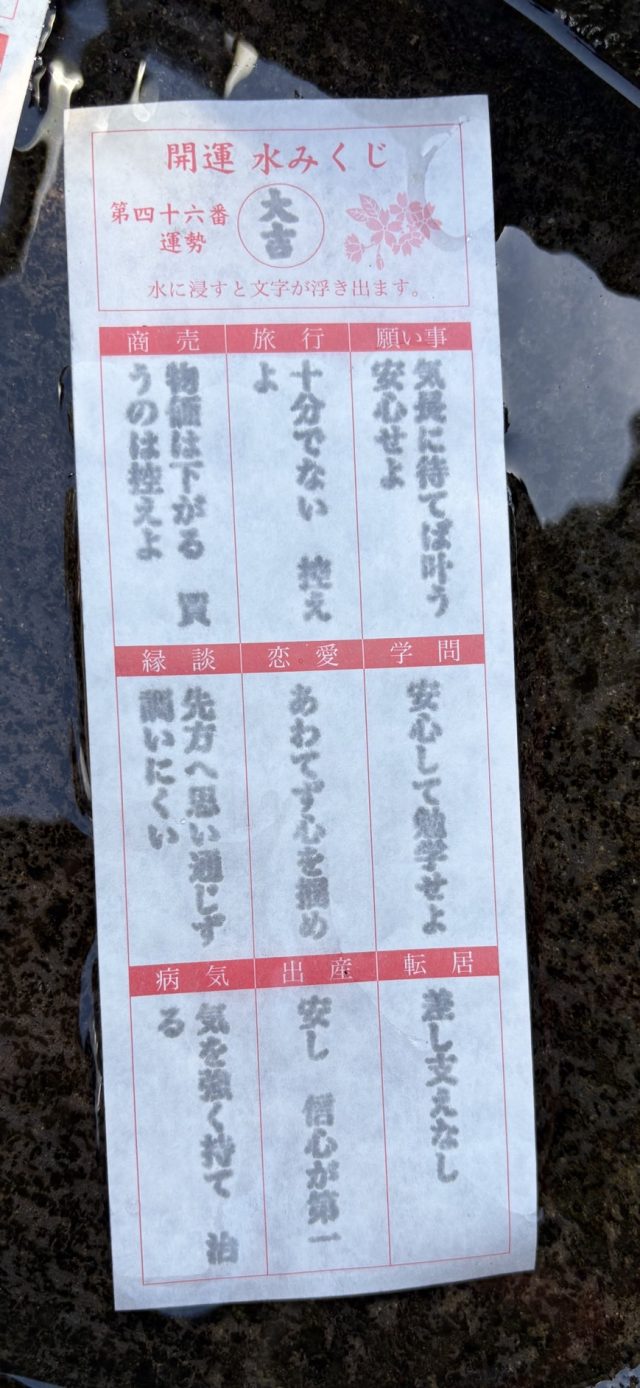 開運 水みくじ
第四十六番
運勢
大吉
水に浸すと文字が浮き出ます。
願い事
気長に待てば叶う
安心せよ
旅行
十分でない 控え
よ
商売
物価は下がる 買
うのは控えよ
学問
安心して勉学せよ
恋愛
あわてず心を掴め
縁談
先方へ思い通じず
調いにくい
転居
差し支えなし
出産
安し 信心が第一
病気
気を強く持て 治
る